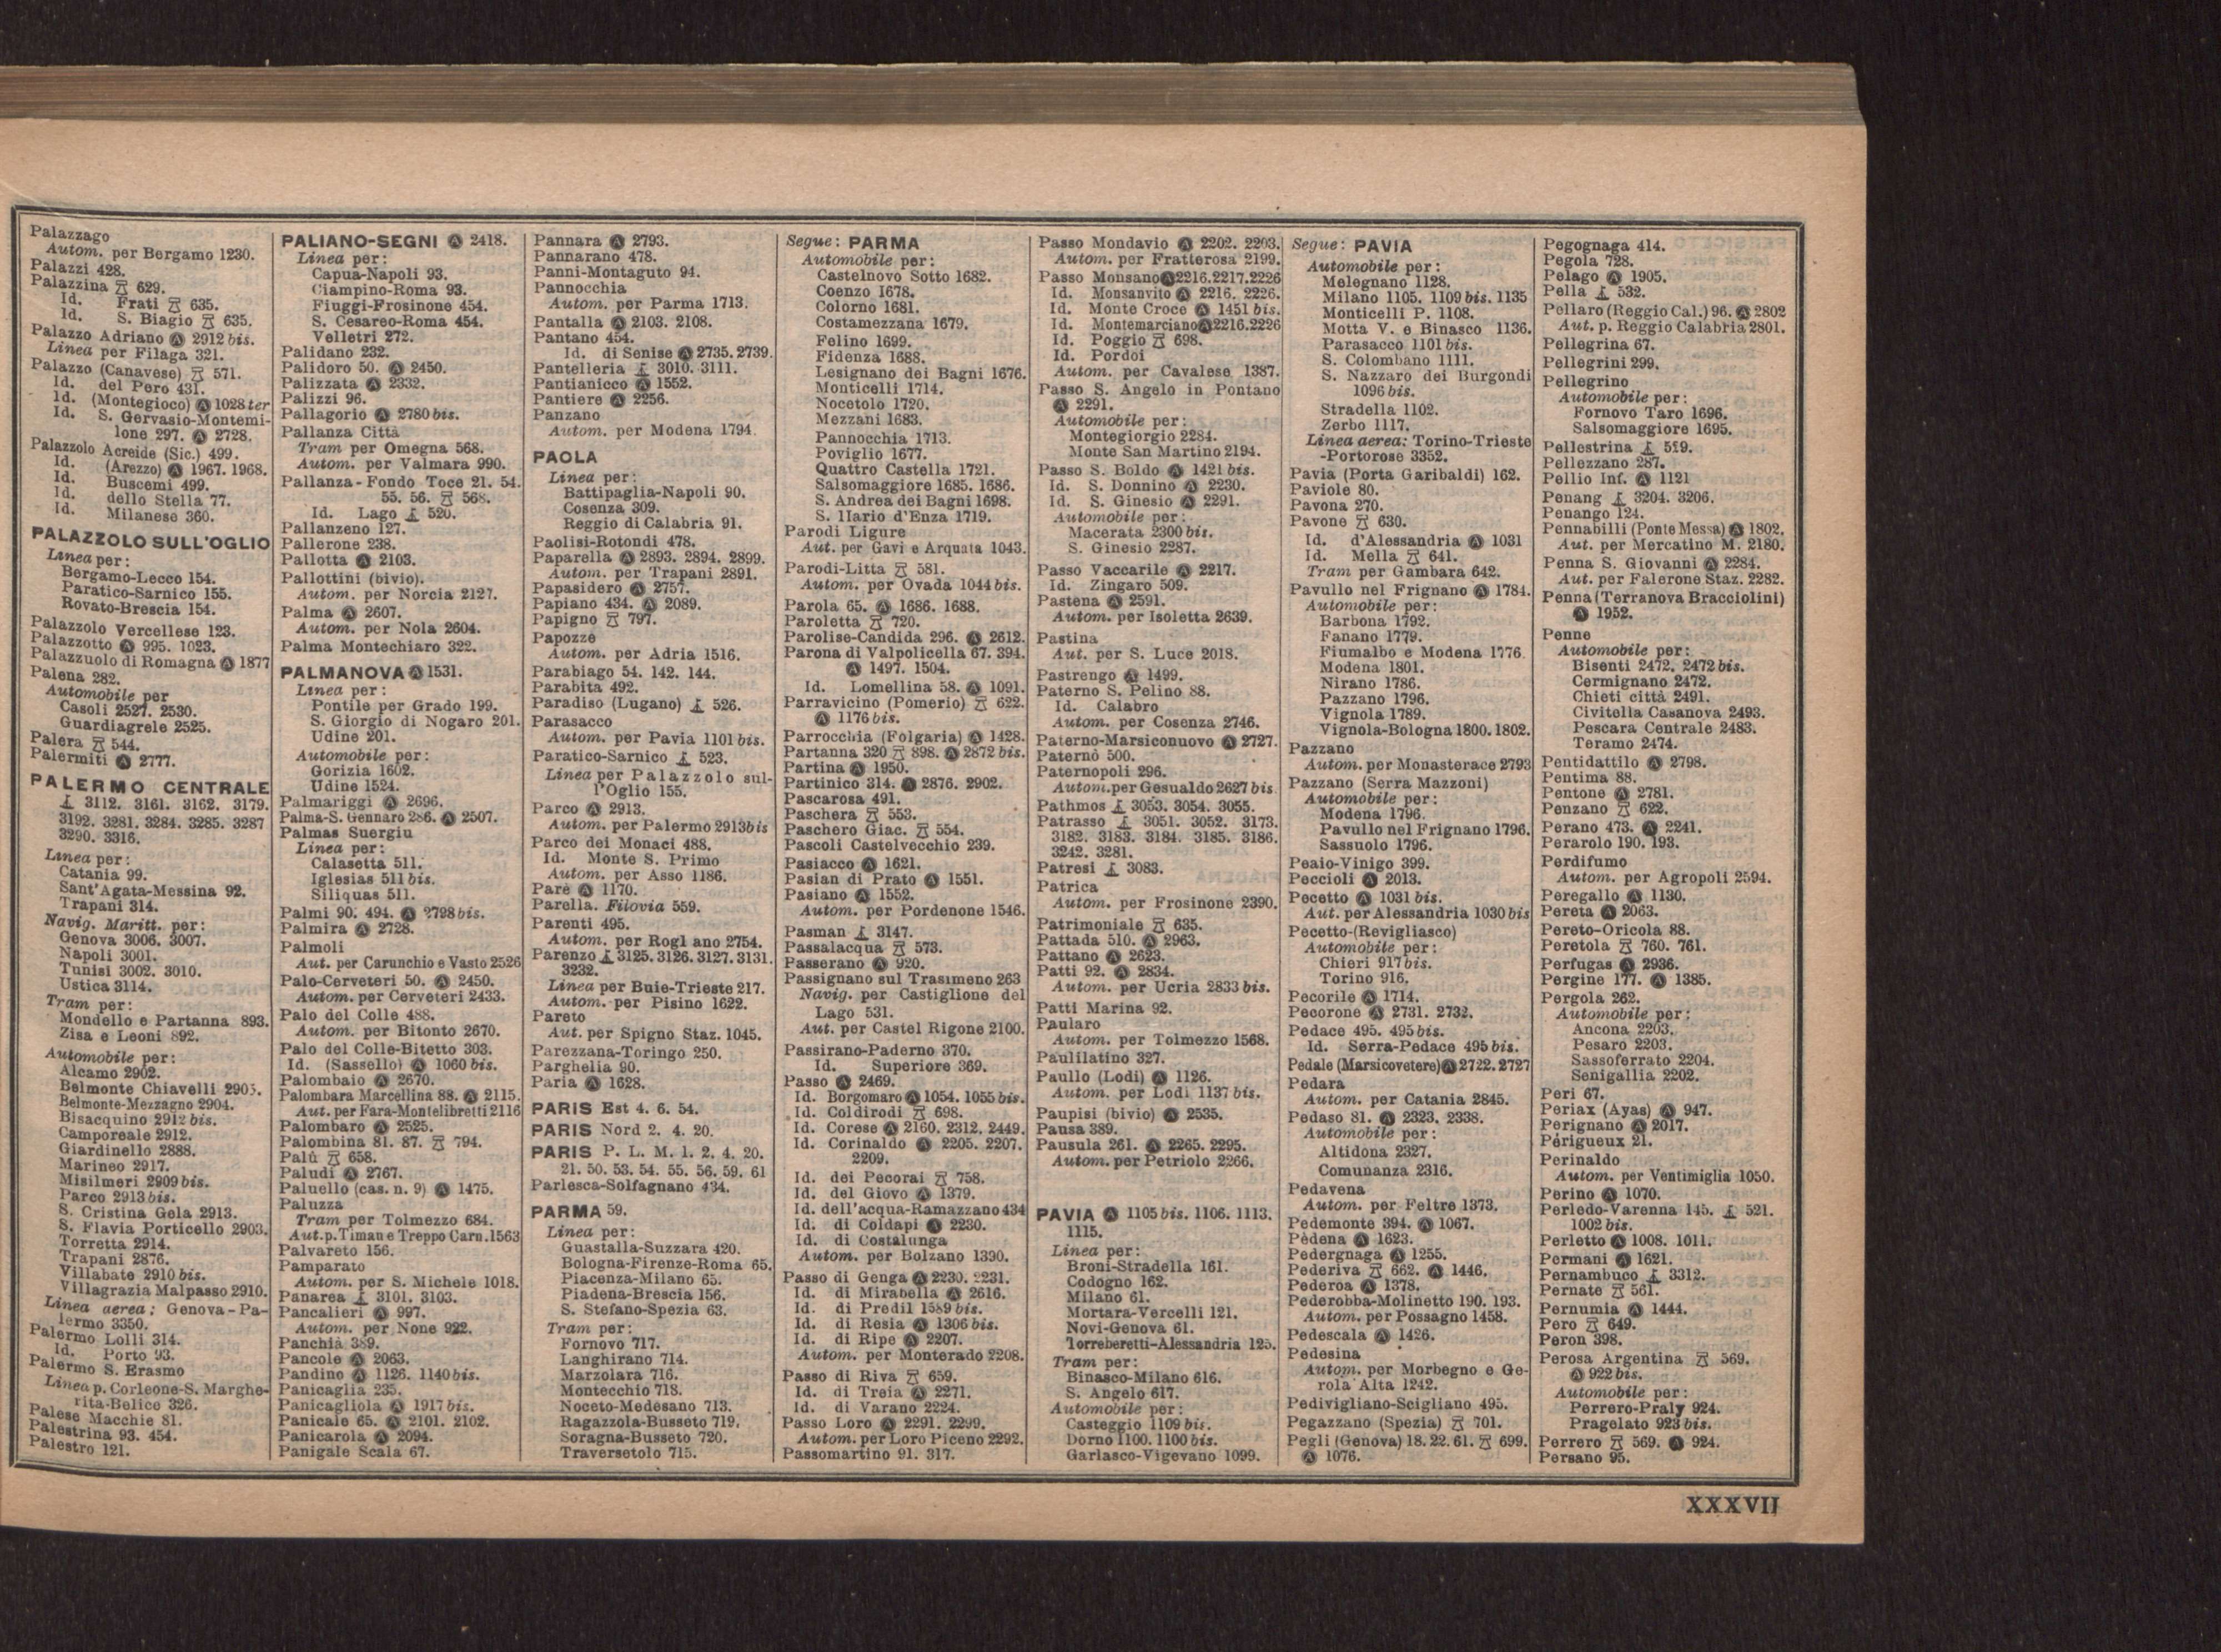 Palazzago
Autom. per Bergamo 1230.
Palazzi 428.
Palazzina 629.
Id. Frati 635.
Id. S. Biagio 635.
Palazzo Adriano A 2912 bis.
Linea per Filaga 321.
Palazzo (Canavese) 571.
Id. del Pero 431.
Id. (Montegioco) A 1028 ter
Id. S. Gervasio-Montemi-
lone 297. A 2728.
Palazzolo Acreide (Sic.) 499.
Id. (Arezzo) A 1967. 1968.
Id. Buscemi 499.
Id. dello Stella 77.
Id. Milanese 360.
PALAZZOLO SULL'OGLIO
Linea per:
Bergamo-Lecco 154.
Paratico-Sarnico 155.
Rovato-Brescia 154.
Palazzolo Vercellese 123.
Palazzotto A 995. 1023.
Palazzuolo di Romagna A 1877
Palena 282.
Automobile per
Casoli 2527. 2530.
Guardiagrele 2525.
Palera 544.
Palermiti A 2777.
PALERMO CENTRALE
3112. 3161. 3162. 3179.
3192. 3281. 3284. 3285. 3287
3290. 3316.
Linea per:
Catania 99.
Sant'Agata-Messina 92.
Trapani 314.
Navig. Maritt. per:
Genova 3006. 3007.
Napoli 3001.
Tunisi 3002. 3010.
Ustica 3114.
Tram per:
Mondello e Partanna 893.
Zisa e Leoni 892.
Automobile per:
Alcamo 2902.
Belmonte Chiavelli 2905.
Belmonte-Mezzagno 2904.
Bisacquino 2912 bis.
Camporeale 2912.
Giardinello 2888.
Marineo 2917.
Misilmeri 2909 bis.
Parco 2913 bis.
S. Cristina Gela 2913.
S. Flavia Porticello 2903.
Torretta 2914.
Trapani 2876.
Villabate 2910 bis.
Villagrazia Malpasso 2910.
Linea aerea: Genova-Pa-
lermo 3350.
Palermo Lolli 314.
Id. Porto 93.
Palermo S. Erasmo
Linea p. Corleone-S. Marghe-
rita-Belice 326.
Palese Macchie 81.
Palestrina 93. 454.
Palestro 121.
PALIANO-SEGNI A 2418.
Linea per:
Capua-Napoli 93.
Ciampino-Roma 93.
Fiuggi-Frosinone 454.
S. Cesareo-Roma 454.
Velletri 272.
Palidano 232.
Palidoro 50. A 2450.
Palizzata A 2332.
Palizzi 96.
Pallagorio A 2780 bis.
Pallanza Città
Tram per Omegna 568.
Autom. per Valmara 990.
Pallanza-Fondo Toce 21. 54.
55. 56. 568.
Id. Lago 520.
Pallanzeno 127.
Pallerone 238.
Pallotta A 2103.
Pallottini (bivio).
Autom. per Norcia 2127.
Palma A 2607.
Autom. per Nola 2604.
Palma Montechiaro 322.
PALMANOVA A 1531.
Linea per:
Pontile per Grado 199.
S. Giorgio di Nogaro 201.
Udine 201.
Automobile per:
Gorizia 1602.
Udine 1524.
Palmariggi A 2696.
Palma-S. Gennaro 286. A 2507.
Palmas Suergiu
Linea per:
Calasetta 511.
Iglesias 511 bis.
Siliquas 511.
Palmi 90. 494. A 2798 bis.
Palmira A 2728.
Palmoli
Aut. per Carunchio e Vasto 2526
Palo-Cerveteri 50. A 2450.
Autom. per Cerveteri 2433.
Palo del Colle 488.
Autom. per Bitonto 2670.
Palo del Colle-Bitetto 303.
Id. (Sassello) A 1060 bis.
Palombaio A 2670.
Palombara Marcellina 88. A 2115.
Aut. per Fara-Montelibretti 2116
Palombaro A 2525.
Palombina 81. 87. 794.
Palù 658.
Paludi A 2767.
Paluello (cas. n. 9) A 1475.
Paluzza
Tram per Tolmezzo 684.
Aut. p. Timau e Treppo Carn. 1563
Palvareto 156.
Pamparato
Autom. per S. Michele 1018.
Panarea 3101. 3103.
Pancalieri A 997.
Autom. per None 922.
Panchià 389.
Pancole A 2063.
Pandino A 1126. 1140 bis.
Panicaglia 235.
Panicagliola A 1917 bis.
Panicale 65. A 2101. 2102.
Panicarola A 2094.
Panigale Scala 67.
Pannara A 2793.
Pannarano 478.
Panni-Montaguto 94.
Pannocchia
Autom. per Parma 1713.
Pantalla A 2103. 2108.
Pantano 454.
Id. di Senise A 2735. 2739.
Pantelleria 3010. 3111.
Pantianicco A 1552.
Pantiere A 2256.
Panzano
Autom. per Modena 1794.
PAOLA
Linea per:
Battipaglia-Napoli 90.
Cosenza 309.
Reggio di Calabria 91.
Paolisi-Rotondi 478.
Paparella A 2893. 2894. 2899.
Autom. per Trapani 2891.
Papasidero A 2757.
Papiano 434. A 2089.
Papigno 797.
Papozze
Autom. per Adria 1516.
Parabiago 54. 142. 144.
Parabita 492.
Paradiso (Lugano) 526.
Parasacco
Autom. per Pavia 1101 bis.
Paratico-Sarnico 523.
Linea per Palazzolo sul-
l'Oglio 155.
Parco A 2913.
Autom. per Palermo 2913 bis
Parco dei Monaci 488.
Id. Monte S. Primo
Autom. per Asso 1186.
Parè A 1170.
Parella. Filovia 559.
Parenti 495.
Autom. per Rogliano 2754.
Parenzo 3125. 3126. 3127. 3131.
3232.
Linea per Buie-Trieste 217.
Autom. per Pisino 1622.
Pareto
Aut. per Spigno Staz. 1045.
Parezzana-Toringo 250.
Parghelia 90.
Paria A 1628.
PARIS Est 4. 6. 54.
PARIS Nord 2. 4. 20.
PARIS P. L. M. 1. 2. 4. 20.
21. 50. 53. 54. 55. 56. 59. 61
Parlesca-Solfagnano 434.
PARMA 59.
Linea per:
Guastalla-Suzzara 420.
Bologna-Firenze-Roma 65.
Piacenza-Milano 65.
Piadena-Brescia 156.
S. Stefano-Spezia 63.
Tram per:
Fornovo 717.
Langhirano 714.
Marzolara 716.
Montecchio 718.
Noceto-Medesano 713.
Ragazzola-Busseto 719.
Soragna-Busseto 720.
Traversetolo 715.
Segue: PARMA
Automobile per:
Castelnovo Sotto 1682.
Coenzo 1678.
Colorno 1681.
Costamezzana 1679.
Felino 1699.
Fidenza 1688.
Lesignano dei Bagni 1676.
Monticelli 1714.
Nocetolo 1720.
Mezzani 1683.
Pannocchia 1713.
Poviglio 1677.
Quattro Castella 1721.
Salsomaggiore 1685. 1686.
S. Andrea dei Bagni 1698.
S. Ilario d'Enza 1719.
Parodi Ligure
Aut. per Gavi e Arquata 1043.
Parodi-Litta 581.
Autom. per Ovada 1044 bis.
Parola 65. A 1686. 1688.
Paroletta 720.
Parolise-Candida 296. A 2612.
Parona di Valpolicella 67. 394.
A 1497. 1504.
Id. Lomellina 58. A 1091.
Parravicino (Pomerio) 622.
A 1176 bis.
Parrocchia (Folgaria) A 1428.
Partanna 320 898. A 2872 bis.
Partina A 1950.
Partinico 314. A 2876. 2902.
Pascarosa 491.
Paschera 553.
Paschero Giac. 554.
Pascoli Castelvecchio 239.
Pasiacco A 1621.
Pasian di Prato A 1551.
Pasiano A 1552.
Autom. per Pordenone 1546.
Pasman 3147.
Passalacqua 573.
Passerano A 920.
Passignano sul Trasimeno 263
Navig. per Castiglione del
Lago 531.
Aut. per Castel Rigone 2100.
Passirano-Paderno 370.
Id. Superiore 369.
Passo A 2469.
Id. Borgomaro A 1054. 1055 bis.
Id. Coldirodi 698.
Id. Corese A 2160. 2312. 2449.
Id. Corinaldo A 2205. 2207.
2209.
Id. dei Pecorai 758.
Id. del Giovo A 1379.
Id. dell'acqua-Ramazzano 434
Id. di Coldapi A 2230.
Id. di Costalunga
Autom. per Bolzano 1390.
Passo di Genga A 2230. 2231.
Id. di Mirabella A 2616.
Id. di Predil 1589 bis.
Id. di Resia A 1306 bis.
Id. di Ripe A 2207.
Autom. per Monterado 2208.
Passo di Riva 659.
Id. di Treia A 2271.
Id. di Varano 2224.
Passo Loro A 2291. 2299.
Autom. per Loro Piceno 2292.
Passomartino 91. 317.
Passo Mondavio A 2202. 2203.
Autom. per Fratterosa 2199.
Passo Monsano A 2216. 2217. 2226
Id. Monsanvito A 2216. 2226.
Id. Monte Croce A 1451 bis.
Id. Montemarciano A 2216. 2226
Id. Poggio 698.
Id. Pordoi
Autom. per Cavalese 1387.
Passo S. Angelo in Pontano
A 2291.
Automobile per:
Montegiorgio 2284.
Monte San Martino 2194.
Passo S. Boldo A 1421 bis.
Id. S. Donnino A 2230.
Id. S. Ginesio A 2291.
Automobile per:
Macerata 2300 bis.
S. Ginesio 2287.
Passo Vaccarile A 2217.
Id. Zingaro 509.
Pastena A 2591.
Autom. per Isoletta 2639.
Pastina
Aut. per S. Luce 2018.
Pastrengo A 1499.
Paterno S. Pelino 88.
Id. Calabro
Autom. per Cosenza 2746.
Paterno-Marsiconuovo A 2727.
Paternò 500.
Paternopoli 296.
Autom. per Gesualdo 2627 bis
Pathmos 3053. 3054. 3055.
Patrasso 3051. 3052. 3173.
3182. 3183. 3184. 3185. 3186.
3242. 3281.
Patresi 3083.
Patrica
Autom. per Frosinone 2390.
Patrimoniale 635.
Pattada 510. A 2963.
Pattano A 2623.
Patti 92. A 2834.
Autom. per Ucria 2833 bis.
Patti Marina 92.
Paularo
Autom. per Tolmezzo 1568.
Paulilatino 327.
Paullo (Lodi) A 1126.
Autom. per Lodi 1137 bis.
Paupisi (bivio) A 2535.
Pausa 389.
Pausula 261. A 2265. 2295.
Autom. per Petriolo 2266.
PAVIA A 1105 bis. 1106. 1113.
1115.
Linea per:
Broni-Stradella 161.
Codogno 162.
Milano 61.
Mortara-Vercelli 121.
Novi-Genova 61.
Torreberetti-Alessandria 125.
Tram per:
Binasco-Milano 616.
S. Angelo 617.
Automobile per:
Casteggio 1109 bis.
Dorno 1100. 1100 bis.
Garlasco-Vigevano 1099.
Segue: PAVIA
Automobile per:
Melegnano 1128.
Milano 1105. 1109 bis. 1135
Monticelli P. 1108.
Motta V. e Binasco 1136.
Parasacco 1101 bis.
S. Colombano 1111.
S. Nazzaro dei Burgondi
1096 bis.
Stradella 1102.
Zerbo 1117.
Linea aerea: Torino-Trieste
-Portorose 3352.
Pavia (Porta Garibaldi) 162.
Paviole 80.
Pavona 270.
Pavone 630.
Id. d'Alessandria A 1031
Id. Mella 641.
Tram per Gambara 642.
Pavullo nel Frignano A 1784.
Automobile per:
Barbona 1792.
Fanano 1779.
Fiumalbo e Modena 1776.
Modena 1801.
Nirano 1786.
Pazzano 1796.
Vignola 1789.
Vignola-Bologna 1800. 1802.
Pazzano
Autom. per Monasterace 2793
Pazzano (Serra Mazzoni)
Automobile per:
Modena 1796.
Pavullo nel Frignano 1796.
Sassuolo 1796.
Peaio-Vinigo 399.
Peccioli A 2013.
Pecetto A 1031 bis.
Aut. per Alessandria 1030 bis
Pecetto-(Revigliasco)
Automobile per:
Chieri 917 bis.
Torino 916.
Pecorile A 1714.
Pecorone A 2731. 2732.
Pedace 495. 495 bis.
Id. Serra-Pedace 495 bis.
Pedale (Marsicovetere) A 2722. 2727
Pedara
Autom. per Catania 2845.
Pedaso 81. A 2323. 2338.
Automobile per:
Altidona 2327.
Comunanza 2316.
Pedavena
Autom. per Feltre 1373.
Pedemonte 394. A 1067.
Pèdena A 1623.
Pedergnaga A 1255.
Pederiva 662. A 1446.
Pederoa A 1378.
Pederobba-Molinetto 190. 193.
Autom. per Possagno 1458.
Pedescala A 1426.
Pedesina
Autom. per Morbegno e Ge-
rola Alta 1242.
Pedivigliano-Scigliano 495.
Pegazzano (Spezia) 701.
Pegli (Genova) 18. 22. 61. 699.
A 1076.
Pegognaga 414.
Pegola 728.
Pelago A 1905.
Pella 532.
Pellaro (Reggio Cal.) 96. A 2802
Aut. p. Reggio Calabria 2801.
Pellegrina 67.
Pellegrini 299.
Pellegrino
Automobile per:
Fornovo Taro 1696.
Salsomaggiore 1695.
Pellestrina 529.
Pellezzano 287.
Pellio Inf. A 1121
Penang 3204. 3206.
Penango 124.
Pennabilli (Ponte Messa) A 1802.
Aut. per Mercatino M. 2180.
Penna S. Giovanni A 2284.
Aut. per Falerone Staz. 2282.
Penna (Terranova Bracciolini)
A 1952.
Penne
Automobile per:
Bisenti 2472. 2472 bis.
Cermignano 2472.
Chieti città 2491.
Civitella Casanova 2493.
Pescara Centrale 2483.
Teramo 2474.
Pentidattilo A 2798.
Pentima 88.
Pentone A 2781.
Penzano 622.
Perano 473. A 2241.
Perarolo 190. 193.
Perdifumo
Autom. per Agropoli 2594.
Peregallo A 1130.
Pereta A 2063.
Pereto-Oricola 88.
Peretola 760. 761.
Perfugas A 2936.
Pergine 177. A 1385.
Pergola 262.
Automobile per:
Ancona 2203.
Pesaro 2203.
Sassoferrato 2204.
Senigallia 2202.
Peri 67.
Periax (Ayas) A 947.
Perignano A 2017.
Périgueux 21.
Perinaldo
Autom. per Ventimiglia 1050.
Perino A 1070.
Perledo-Varenna 145. 521.
1002 bis.
Perletto A 1008. 1011.
Permani A 1621.
Pernambuco 3312.
Pernate 561.
Pernumia A 1444.
Pero 649.
Peron 398.
Perosa Argentina 569.
A 922 bis.
Automobile per:
Perrero-Praly 924.
Pragelato 923 bis.
Perrero 569. A 924.
Persano 95.
XXXVII